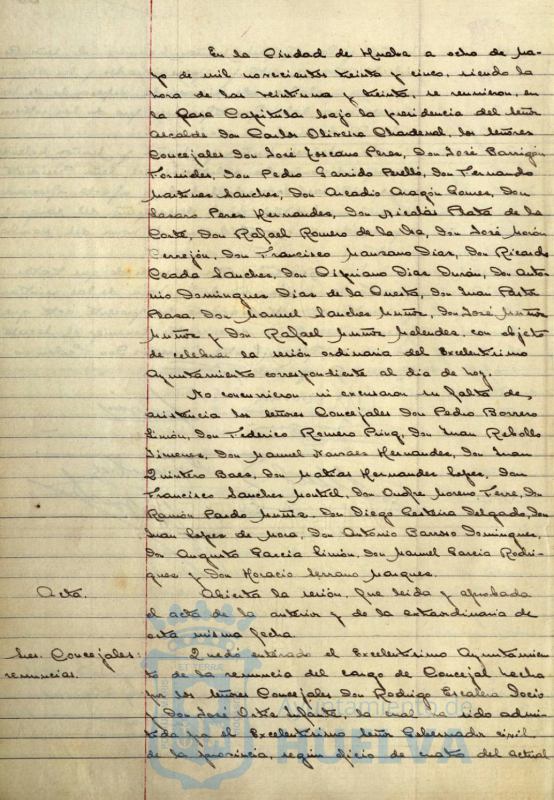 En la Ciudad de Huelva a ocho de ma-
yo de mil novecientos treinta y cinco, siendo la
hora de las veintiuna y treinta, se reunieron, en
la Casa Capitular bajo la presidencia del Señor
Alcalde Don Carlos Oliveira Chardenal, los Señores
Concejales Don José Toscano Perez, Don José Barrigón
Fornieles, Don Pedro Garrido Perelló, Don Fernando
Martinez Sanchez, Don Arcadio Aragón Gomez, Don
Lazaro Perez Hernandez, Don Nicolás Plata de la
Corte, Don Rafael Romero de la Isa, Don José Morón
Cerrejón, Don Francisco Manzano Diaz, Don Ricardo
Ceada Sanchez, Don Cipriano Diaz Durán, Don Anto-
nio Dominguez Diaz de la Cuesta, Don Juan
Don Manuel Sanchez Muñoz, Don José Muñoz
Muñoz y Don Rafael Muñoz Melendez, con objeto
de celebrar la sesión ordinaria del Excelentísimo
Ayuntamiento correspondiente al dia de hoy.
No concurrieron ni excusaron su falta de
asistencia los Señores Concejales Don Pedro Borrero
Limón, Don Federico Romero Don Juan Rebollo
Jimenez, Don Manuel Narvaez Hernandez, Don Juan
Quintero Baez, Don Matias Hernandez Lopez, Don
Francisco Sanchez Montiel, Don Andre Moreno Don
Ramón Pardo Muñiz, Don Diego Delgado, Don
Juan Lopez de Mora, Don António Barroso Dominguez,
Don Augusto Garcia Limón, Don Manuel Garcia Rodri-
guez y Don Horacio Serrano Marquez.
Acta.
Abierta la sesión, fue leida y aprobada
el acta de la anterior y de la extraordinaria de
esta misma fecha.
Sres. Concejales:
renuncias.
Quedó enterado el Excelentisimo Ayuntamien-
to de la renuncia del cargo de Concejal hecha
por los Señores Concejales Don Rodrigo Escalera Tocio
y Don José Ortiz Infante, la cual ha sido admi-
tida por el Excelentísimo Señor Gobernador civil
de la provincia, según oficio de cuatro del actual
Ayuntamiento de
HUELVA